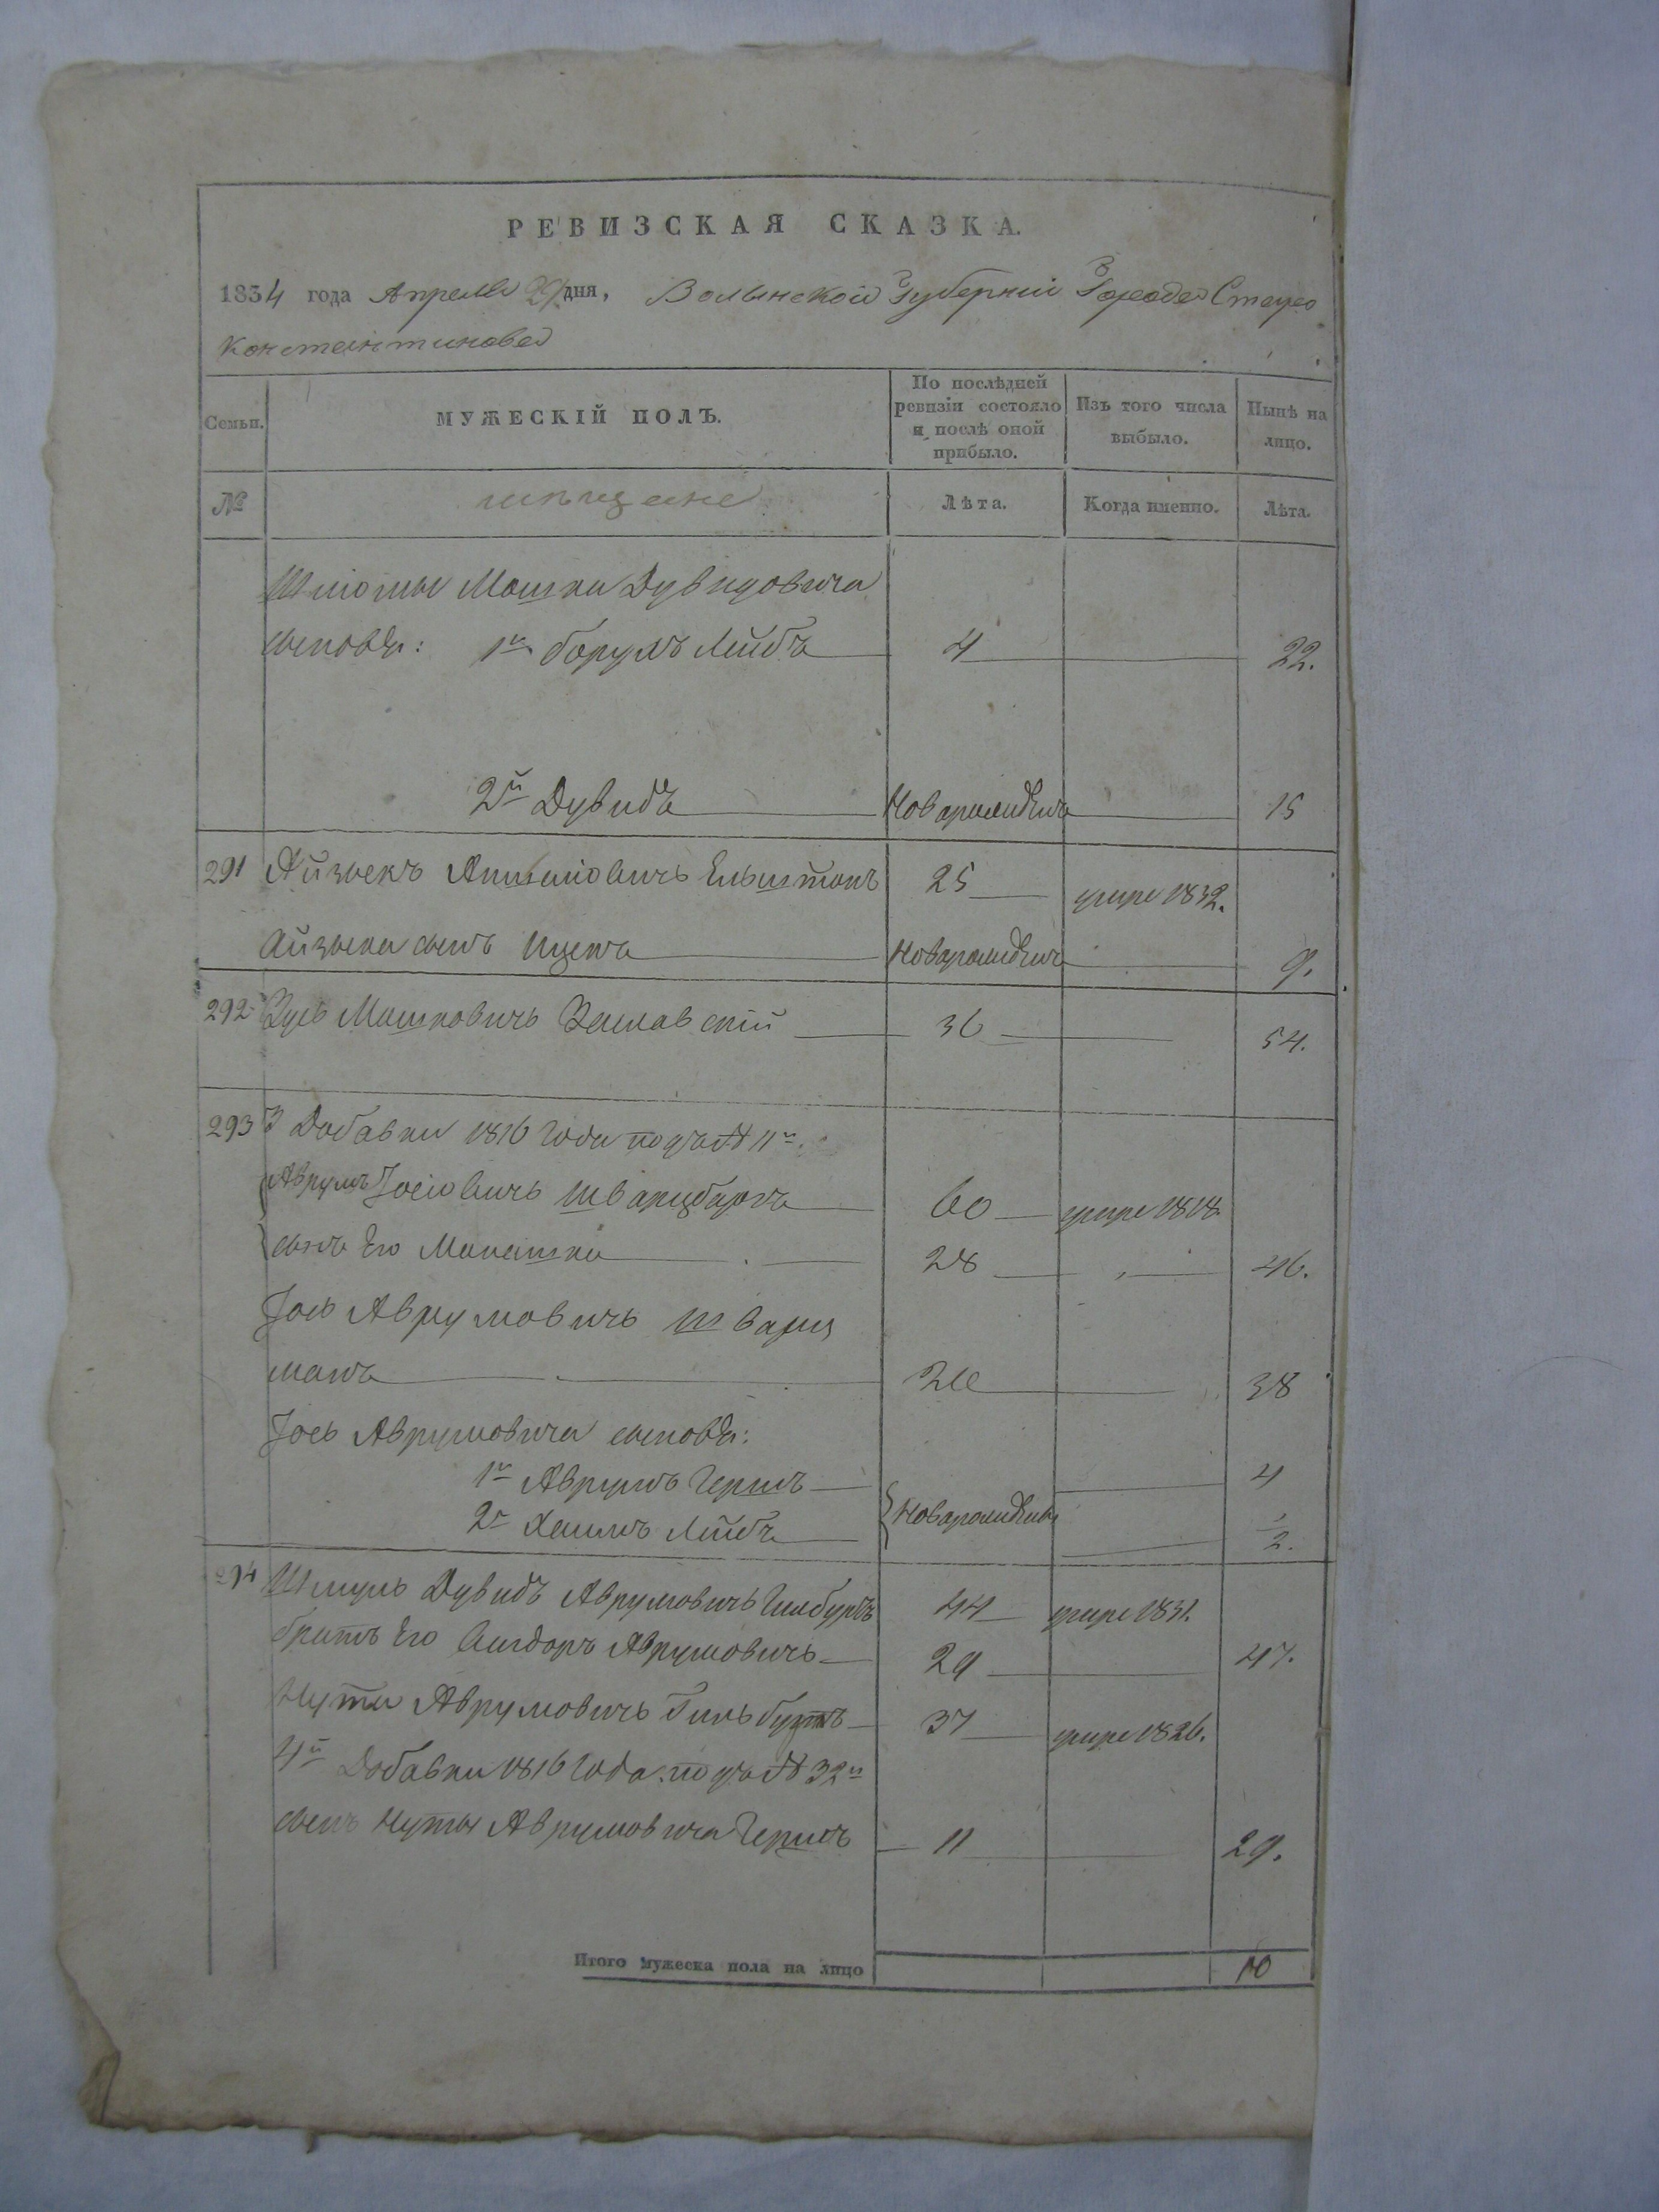 РЕВИЗСКАЯ СКАЗКА.
1834 года Апреля 29 дня, Волынской Губерніи Города Старо
Константинова
Семьи. МУЖЕСКІЙ ПОЛЪ. По послѣдней ревизіи состояло и послѣ оной прибыло. Изъ того числа выбыло. Нынѣ на лицо.
№ мѣщане Лѣта. Когда именно. Лѣта.
Шліомы Мошка Дувидовича
сыновья: 1й борухъ Лейбъ 4 22.
2й Дувидъ Новарожденъ 15
291 Айзыкъ 25 умре 1832.
Айзыка сынъ Ицекъ Новарожденъ 9.
292 Зусь Мошковичъ Заславскій 36 54.
293 З Добавки 1816 Года подъ № 11м.
Аврумъ Іосіовичъ Шварцбархъ 60 умре 1818
сынъ Его Манашко 28 46.
Іось Аврумовичъ Шварц
манъ 20 38
Іось Аврумовича сыновья:
1й Аврумъ Гершъ 4
2й Хаимъ Лейбъ Новарожденъ 2.
294 Шмуль Дувидъ Аврумовичъ 44 умре 1831.
братъ Его Авигдоръ Аврумовичъ 29 47.
Нута Аврумовичъ 37 умре 1826.
4й Добавки 1816 Года подъ № 32м
сынъ Нуты Аврумовича Гершъ 11 29.
Итого мужеска пола на лицо 10